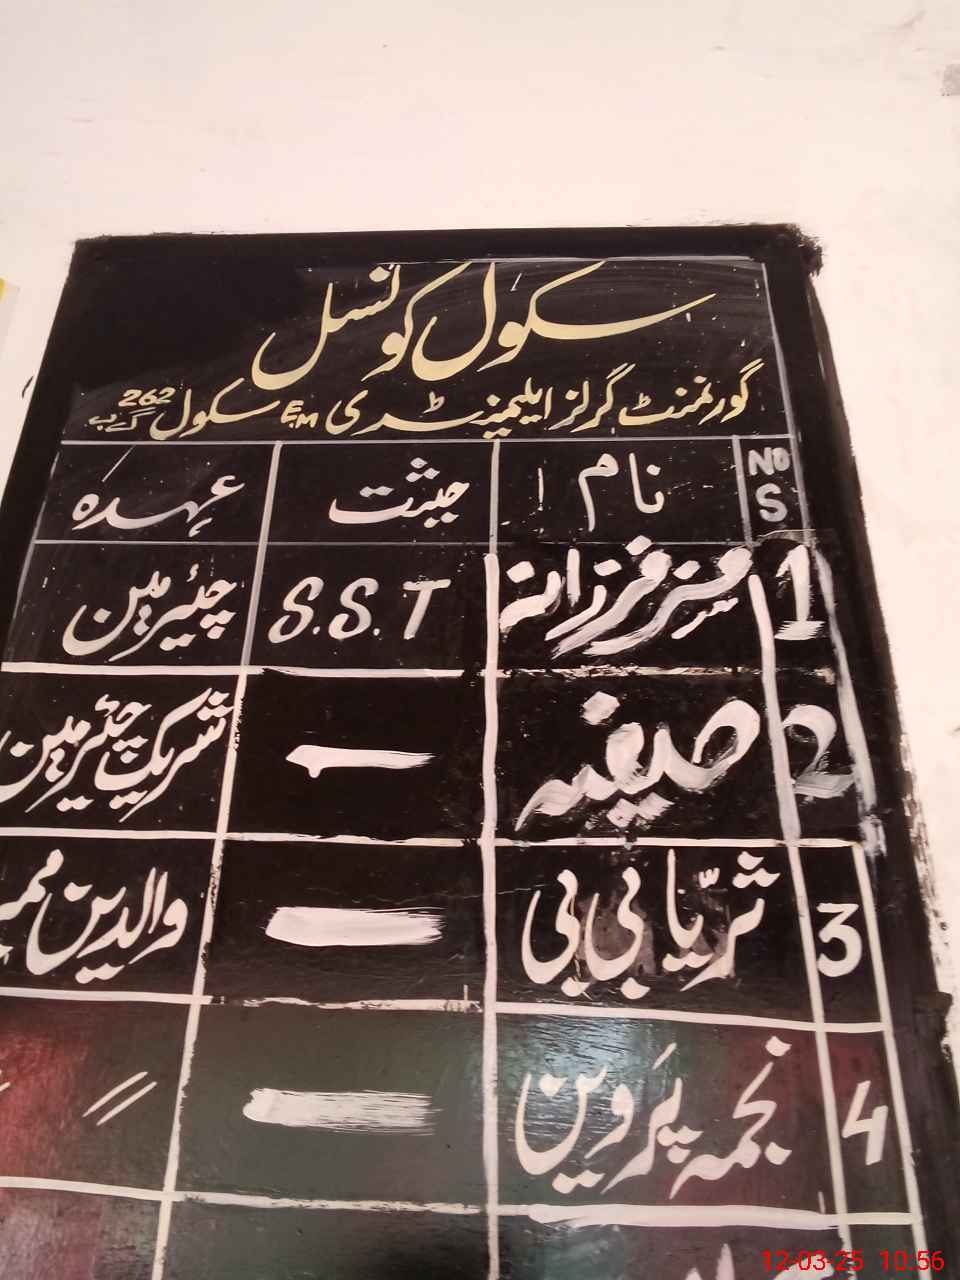 سکول کونسل
گورنمنٹ گرلز ایلیمینٹری E.M سکول 262 گ ب
No S نام حیثت عہدہ
1 مسز فرزانہ S.S.T چیئرمین
2 صفیہ — شریک چیئرمین
3 ثریّا بی بی — والدین
4 نجمہ پروین — 〃
12-03-25 10:56